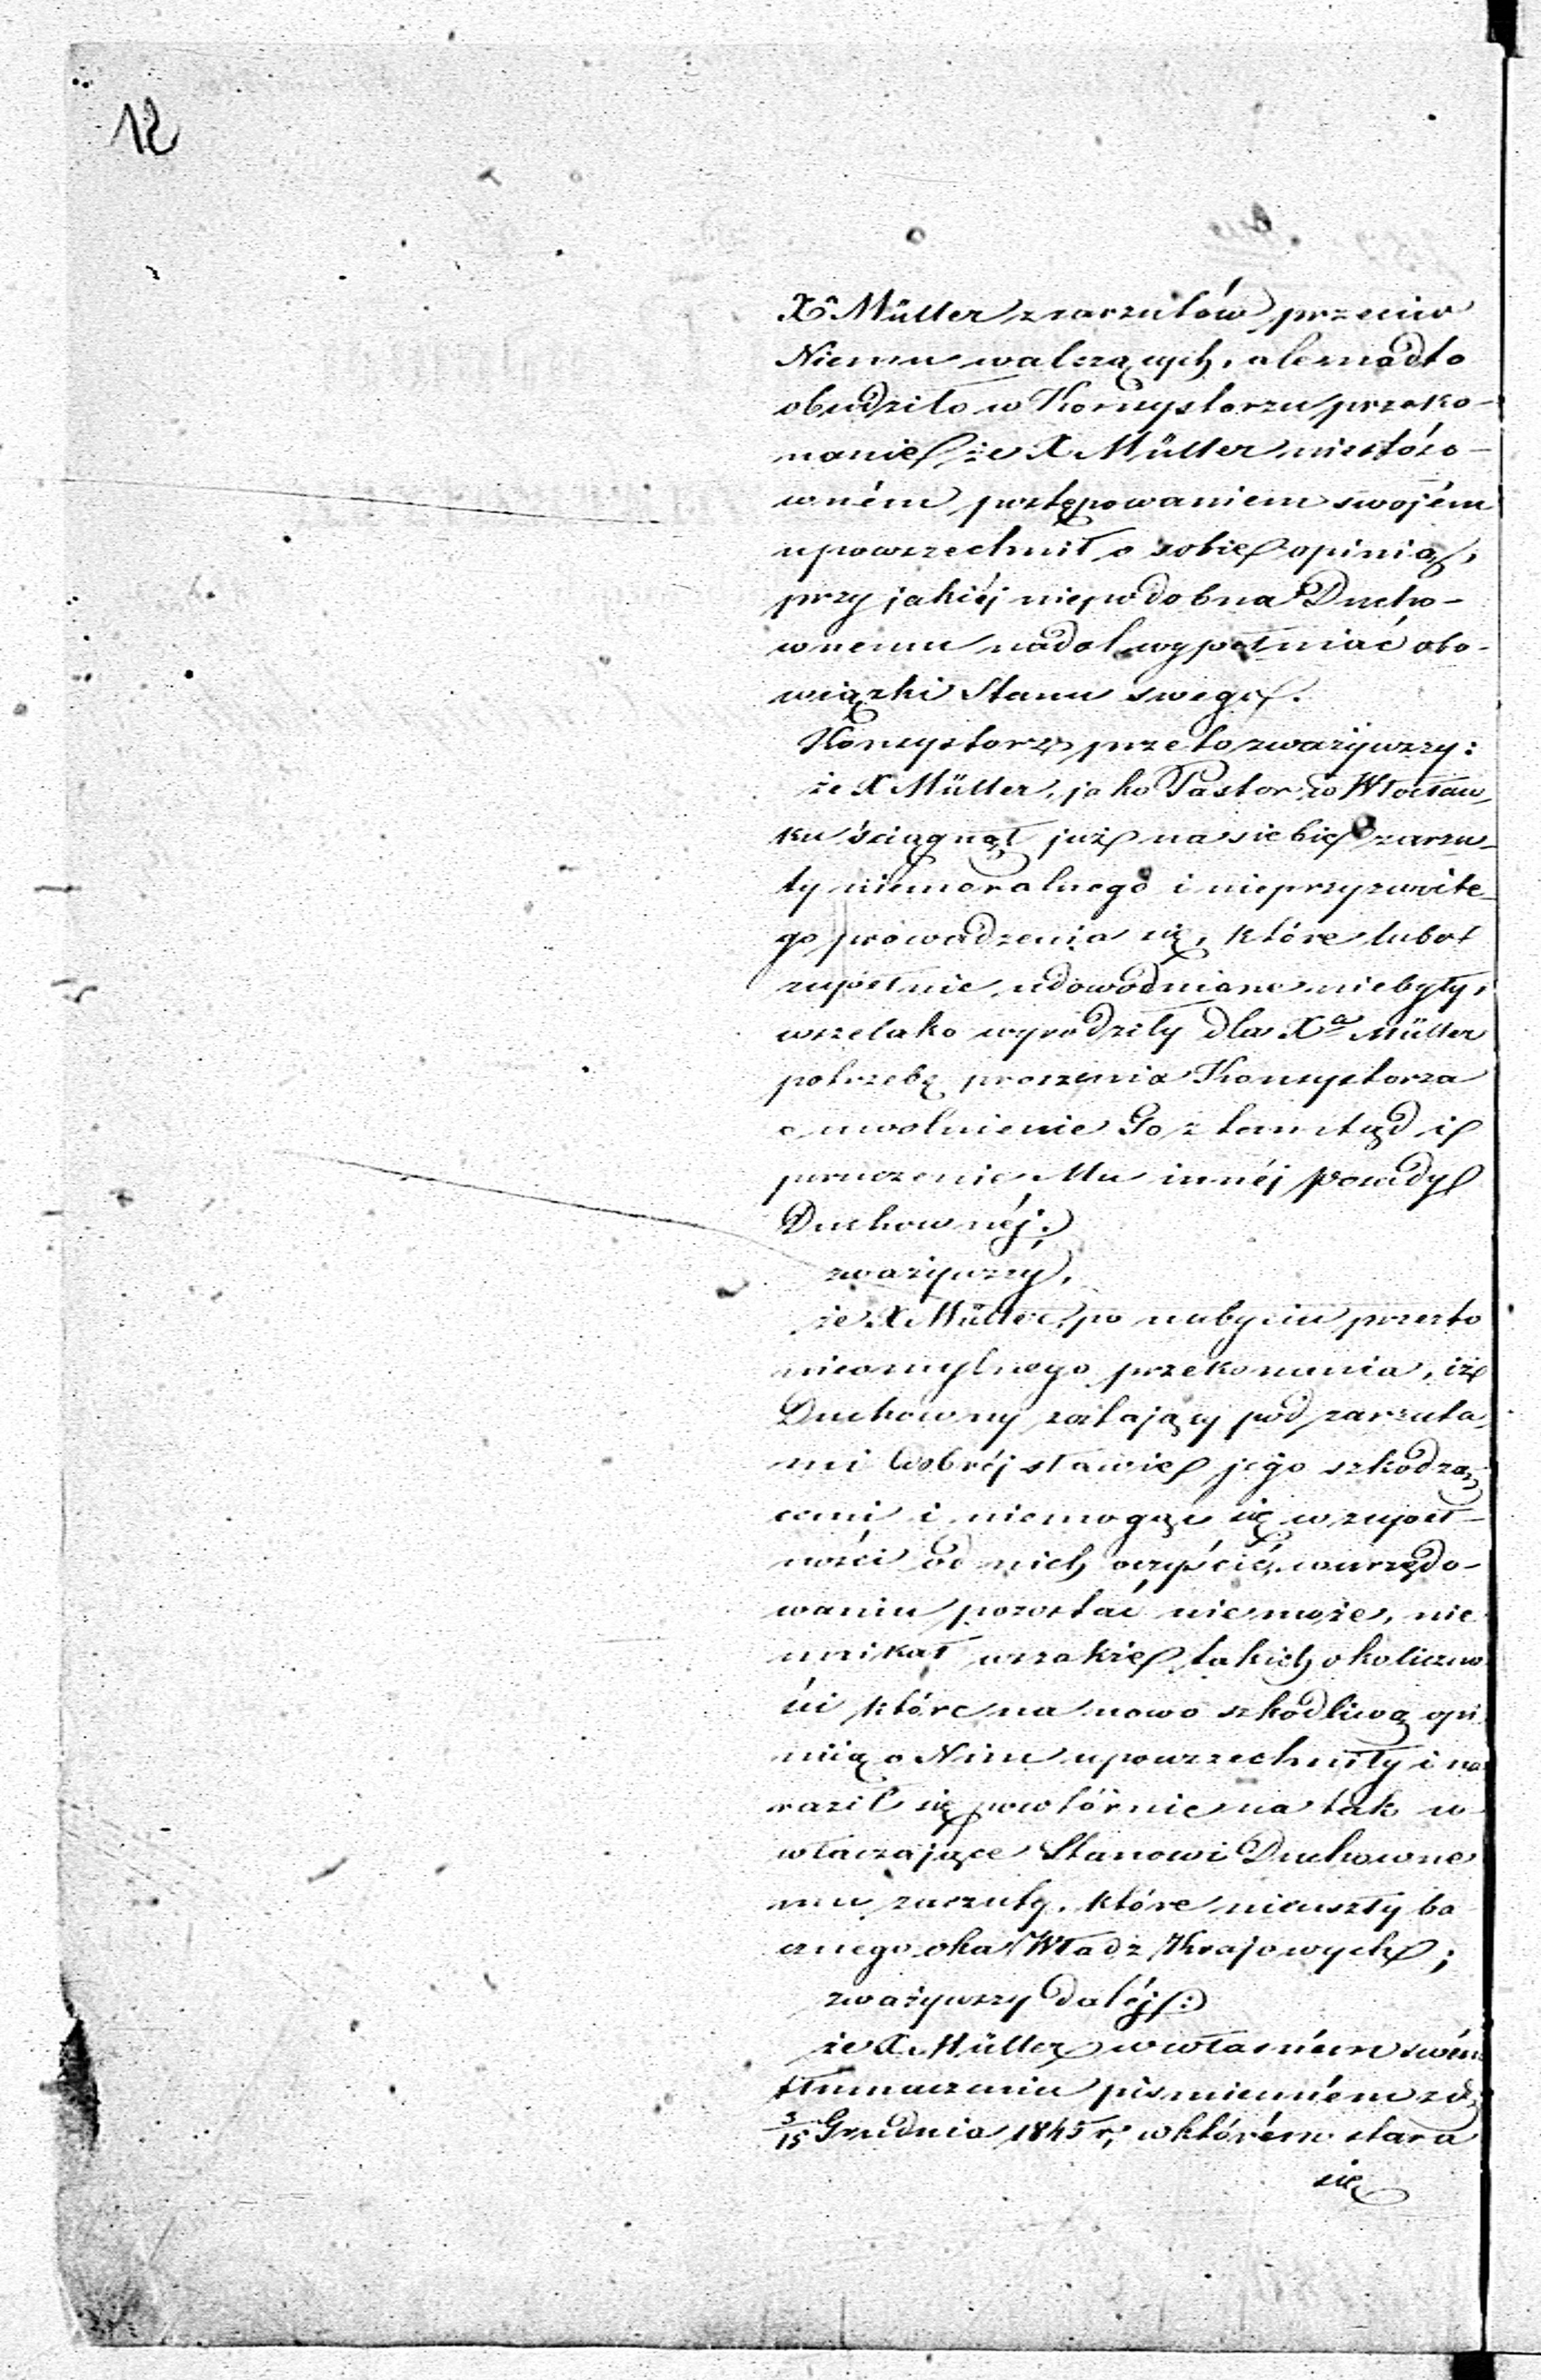 12
Xa Müller z zarzutów przeciw
Niemu walczących, ale nadto
obudziło w Konsystorzu przeko-
nanie że X Müller niestóso-
wném postępowaniem swojém
upowszechnił o sobie opinią,
przy jakiéj niepodobna Ducho-
wnemu nadal wypełniać obo-
wiązki Stanu swego.
Konsystorz przeto zważywszy:
że X Müller, jako Pastor w Włocław-
ku ściągnął już na siebie zarzu-
ty niemoralnego i nieprzyzwoite-
go prowadzenia się, które lubo
zupełnie udowodnione niebyły,
wszelako wyrodziły dla Xa Müller
potrzebę proszenia Konsystorza
o uwolnienie Go z tamtąd i
poruczenie Mu innéj posady
Duchownéj;
zważywszy,
że X Müller, po nabyciu przezto
nieomylnego przekonania, iż
Duchowny zostający pod zarzuta-
mi dobréj sławie jego szkodzą-
cemi i niemogąc się w zupeł-
ności od nich oczyścić, w urzędo-
waniu pozostać niemoże, nie
unikał wszakże takich okoliczno
ści które na nowo szkodliwą opi-
nią o Nim upowszechniły i na
raził się powtórnie na tak u-
właczające Stanowi Duchowne
mu zarzuty, które nieuszły ba
cznego oka Władz Krajowych;
zważywszy daléj:
że X Müller w własném swém
tłumaczeniu piśmienném z d.
3/15 Grudnia 1845 r, w którém stara
się